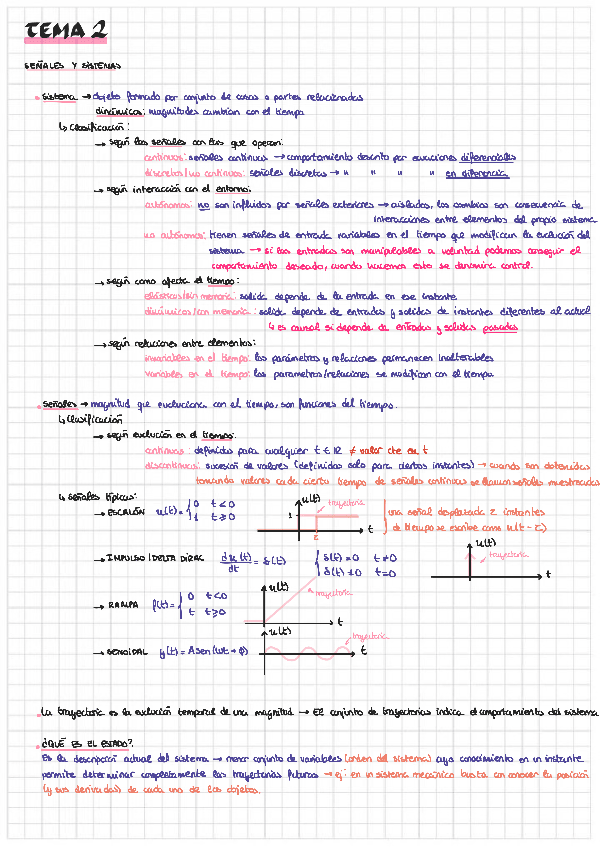 TEMA 2
SEÑALES Y SISTEMAS
• Sistema → objeto formado por conjunto de cosas o partes relacionadas
dinámicos: magnitudes cambian con el tiempo
↳ Clasificación:
→ según las señales con las que operan:
continuos: señales continuas → comportamiento descrito por ecuaciones diferenciales
discretos/no continuos: señales discretas → " " " " en diferencia
→ según interacción con el entorno:
autónomos: no son influidos por señales exteriores → aislados, los cambios son consecuencia de
interacciones entre elementos del propio sistema
no autónomos: tienen señales de entrada variables en el tiempo que modifican la evolución del
sistema → si las entradas son manipulables a voluntad podemos conseguir el
comportamiento deseado, cuando hacemos esto se denomina control.
→ según como afecta el tiempo:
estáticos/sin memoria: salida depende de la entrada en ese instante
dinámicos/con memoria: salida depende de entradas y salidas de instantes diferentes al actual
↳ es causal si depende de entradas y salidas pasadas
→ según relaciones entre elementos:
invariables en el tiempo: los parámetros y relaciones permanecen inalterables
variables en el tiempo: los parametros/relaciones se modifican con el tiempo
• Señales → magnitud que evoluciona con el tiempo, son funciones del tiempo.
↳ Clasificación
→ según evolución en el tiempo:
continuas: definidas para cualquier t ∈ IR ≠ valor cte en t
discontinuas: sucesión de valores (definidas solo para ciertos instantes) → cuando son obtenidas
tomando valores cada cierto tiempo de señales continuas se llaman señales muestreadas
↳ Señales típicas:
→ ESCALÓN u(t) = { 0 t<0
1 t≥0
u(t) trayectoria 1 t
una señal desplazada z instantes
de tiempo se escribe como u(t - z)
→ IMPULSO/DELTA DIRAC du(t)/dt = δ(t) { δ(t)=0 t≠0
δ(t)≠0 t=0
u(t) trayectoria t
→ RAMPA r(t) = { 0 t<0
t t≥0
u(t) trayectoria t
→ SENOIDAL y(t) = Asen(wt + ϕ) u(t) trayectoria t
• La trayectoria es la evolución temporal de una magnitud → El conjunto de trayectorias indica el comportamiento del sistema
• ¿QUÉ ES EL ESTADO?
Es la descripción actual del sistema → menor conjunto de variables (orden del sistema) cuyo conocimiento en un instante
permite determinar completamente las trayectorias futuras → ej: en un sistema mecánico basta con conocer la posición
(y sus derivadas) de cada uno de los objetos.